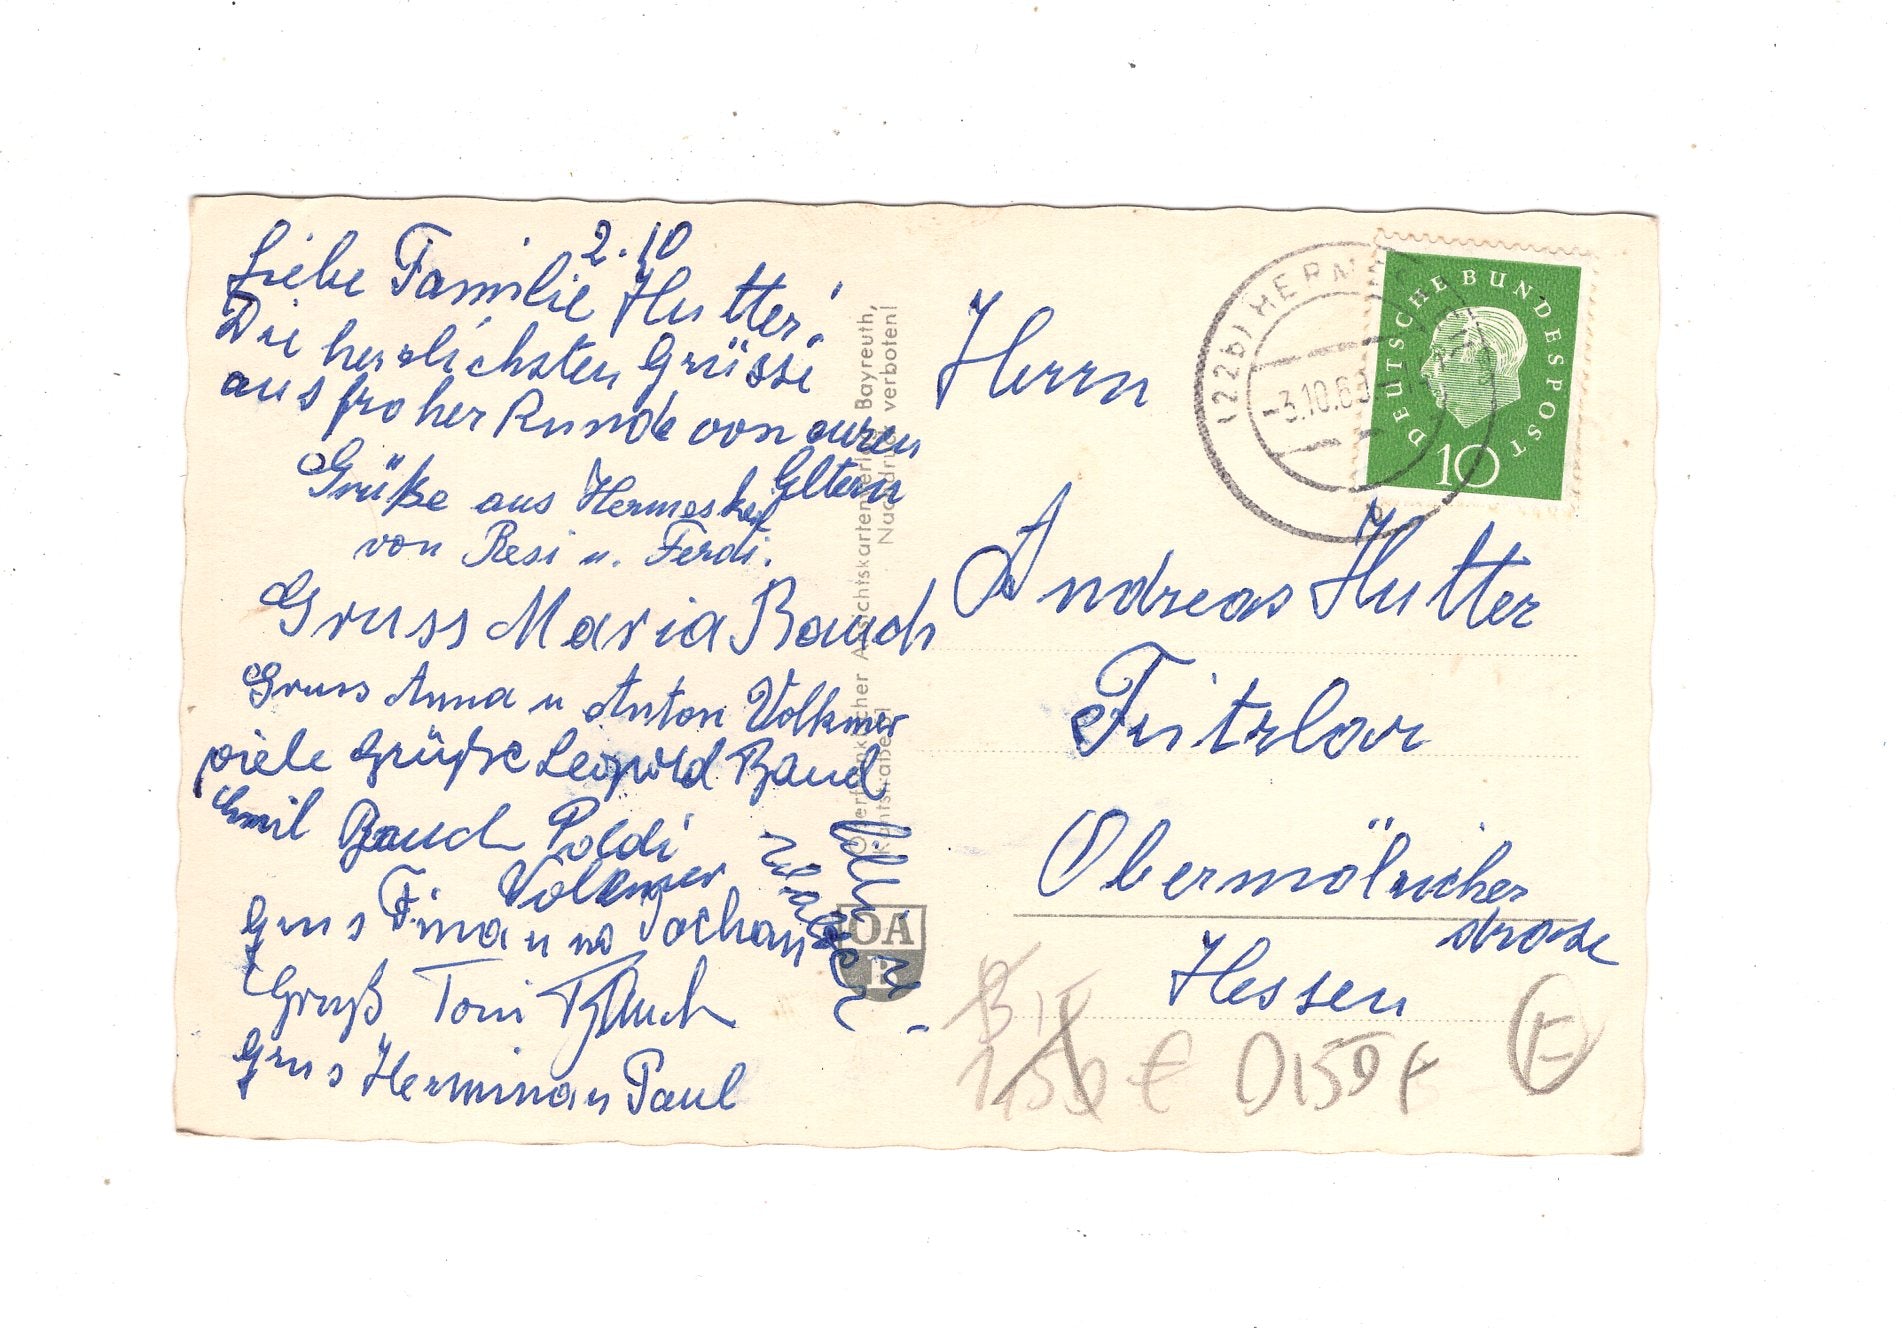 2.10
Liebe Familie Hutter!
Die herzlichsten Grüsse
aus froher Runde von euren
Eltern
Grüße aus Hermeskeil
von Resi u. Ferdi.
Gruss Maria Bauch
Gruss Anna u Anton Volkmer
viele Grüße Leopold Bauch
Emil Bauch Poldi
Volkmer
Grus Fina u
Gruß Toni Bauch
Grus Hermina u Paul
Oberfränkischer Ansichtskartenverlag Bayreuth,
Nachdruck verboten!
OA
(22b) HERM
-3.10.60
b
DEUTSCHE BUNDESPOST
10
Herrn
Andreas Hutter
Fritzlar
Obermölricher
strase
Hessen
1,50 €
E